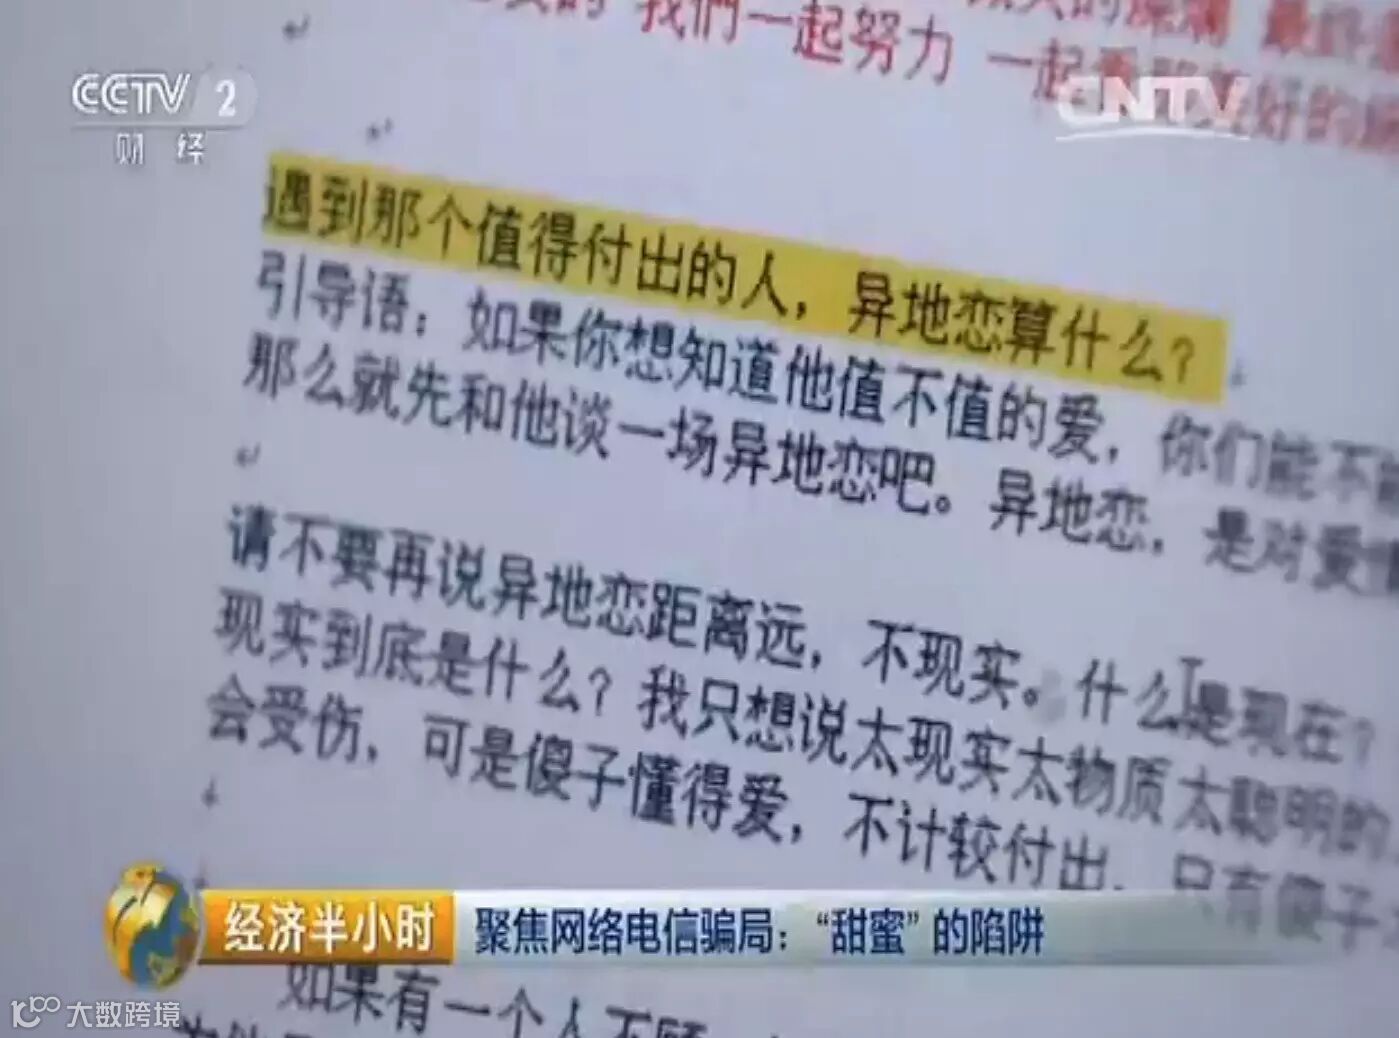 我們一起努力 一起
CCTV 2
财 经
CNTV
好的
遇到那个值得付出的人，异地恋算什么？
引导语：如果你想知道他值不值的爱，你们能不能
那么就先和他谈一场异地恋吧。异地恋，是对爱情
请不要再说异地恋距离远，不现实。什么是现在？
现实到底是什么？我只想说太现实太物质太聪明的
会受伤，可是傻子懂得爱，不计较付出，只有傻子
经济半小时
聚焦网络电信骗局：“甜蜜”的陷阱
如果有一个人不顾
大数跨境